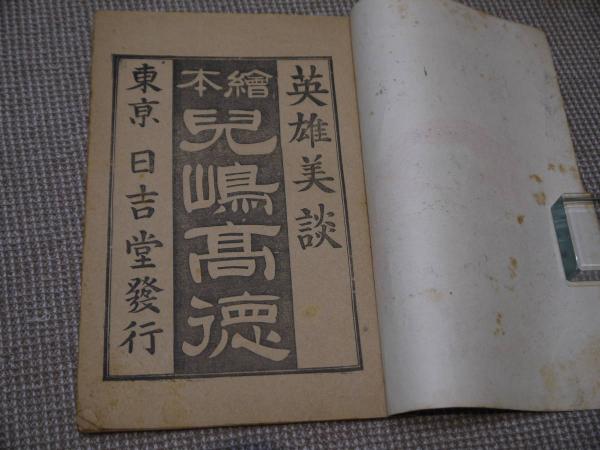 英雄美談
繪本
兒嶋髙徳
東京 日吉堂發行